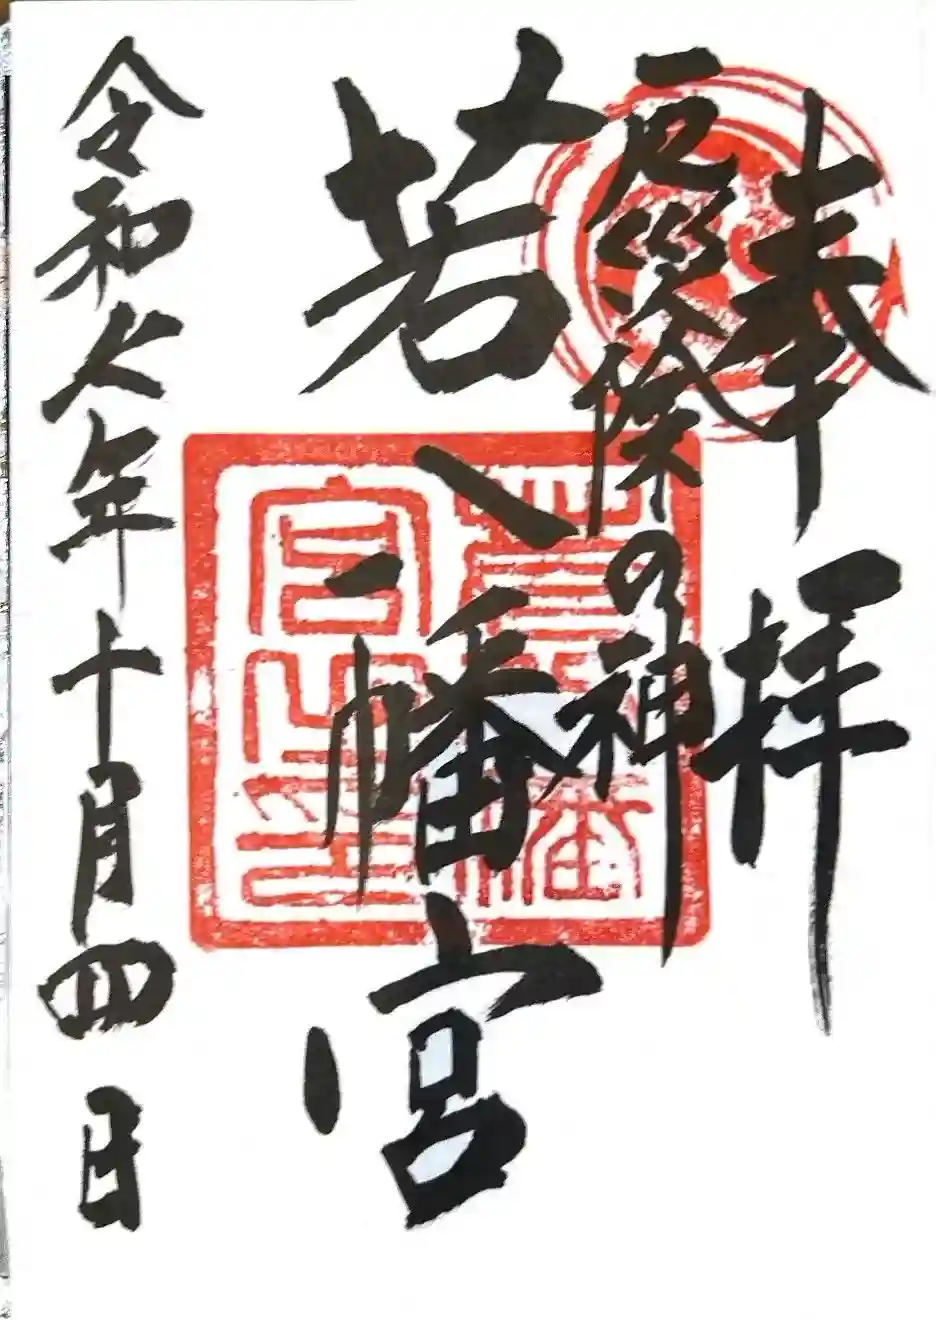 奉拝
厄災除の神
若八幡宮
令和六年十月四日
若八幡
宮之印